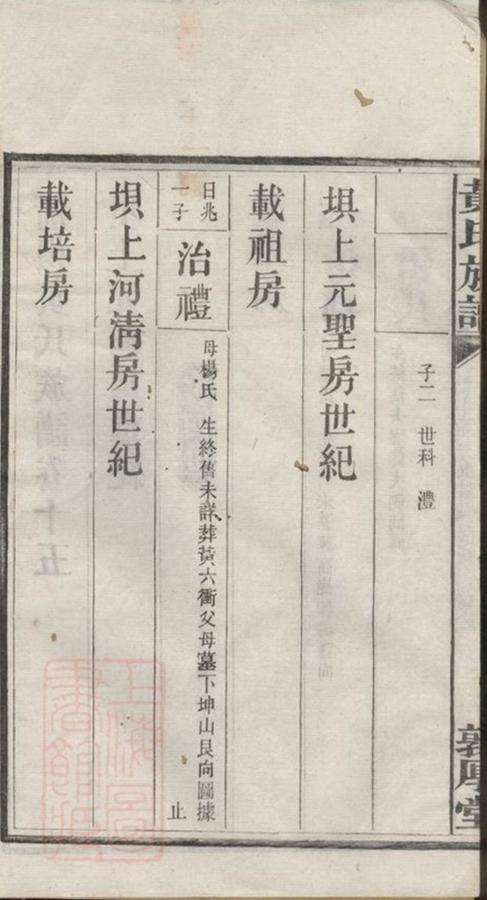 黃氏族譜
敦厚堂
子二 世科 澧
垻上元聖房世紀
載祖房
日兆
一子
治禮
母楊氏 生終舊未詳葬黃六衝父母墓下坤山艮向圖據
止
垻上河淸房世紀
載培房
上海圖
書館藏